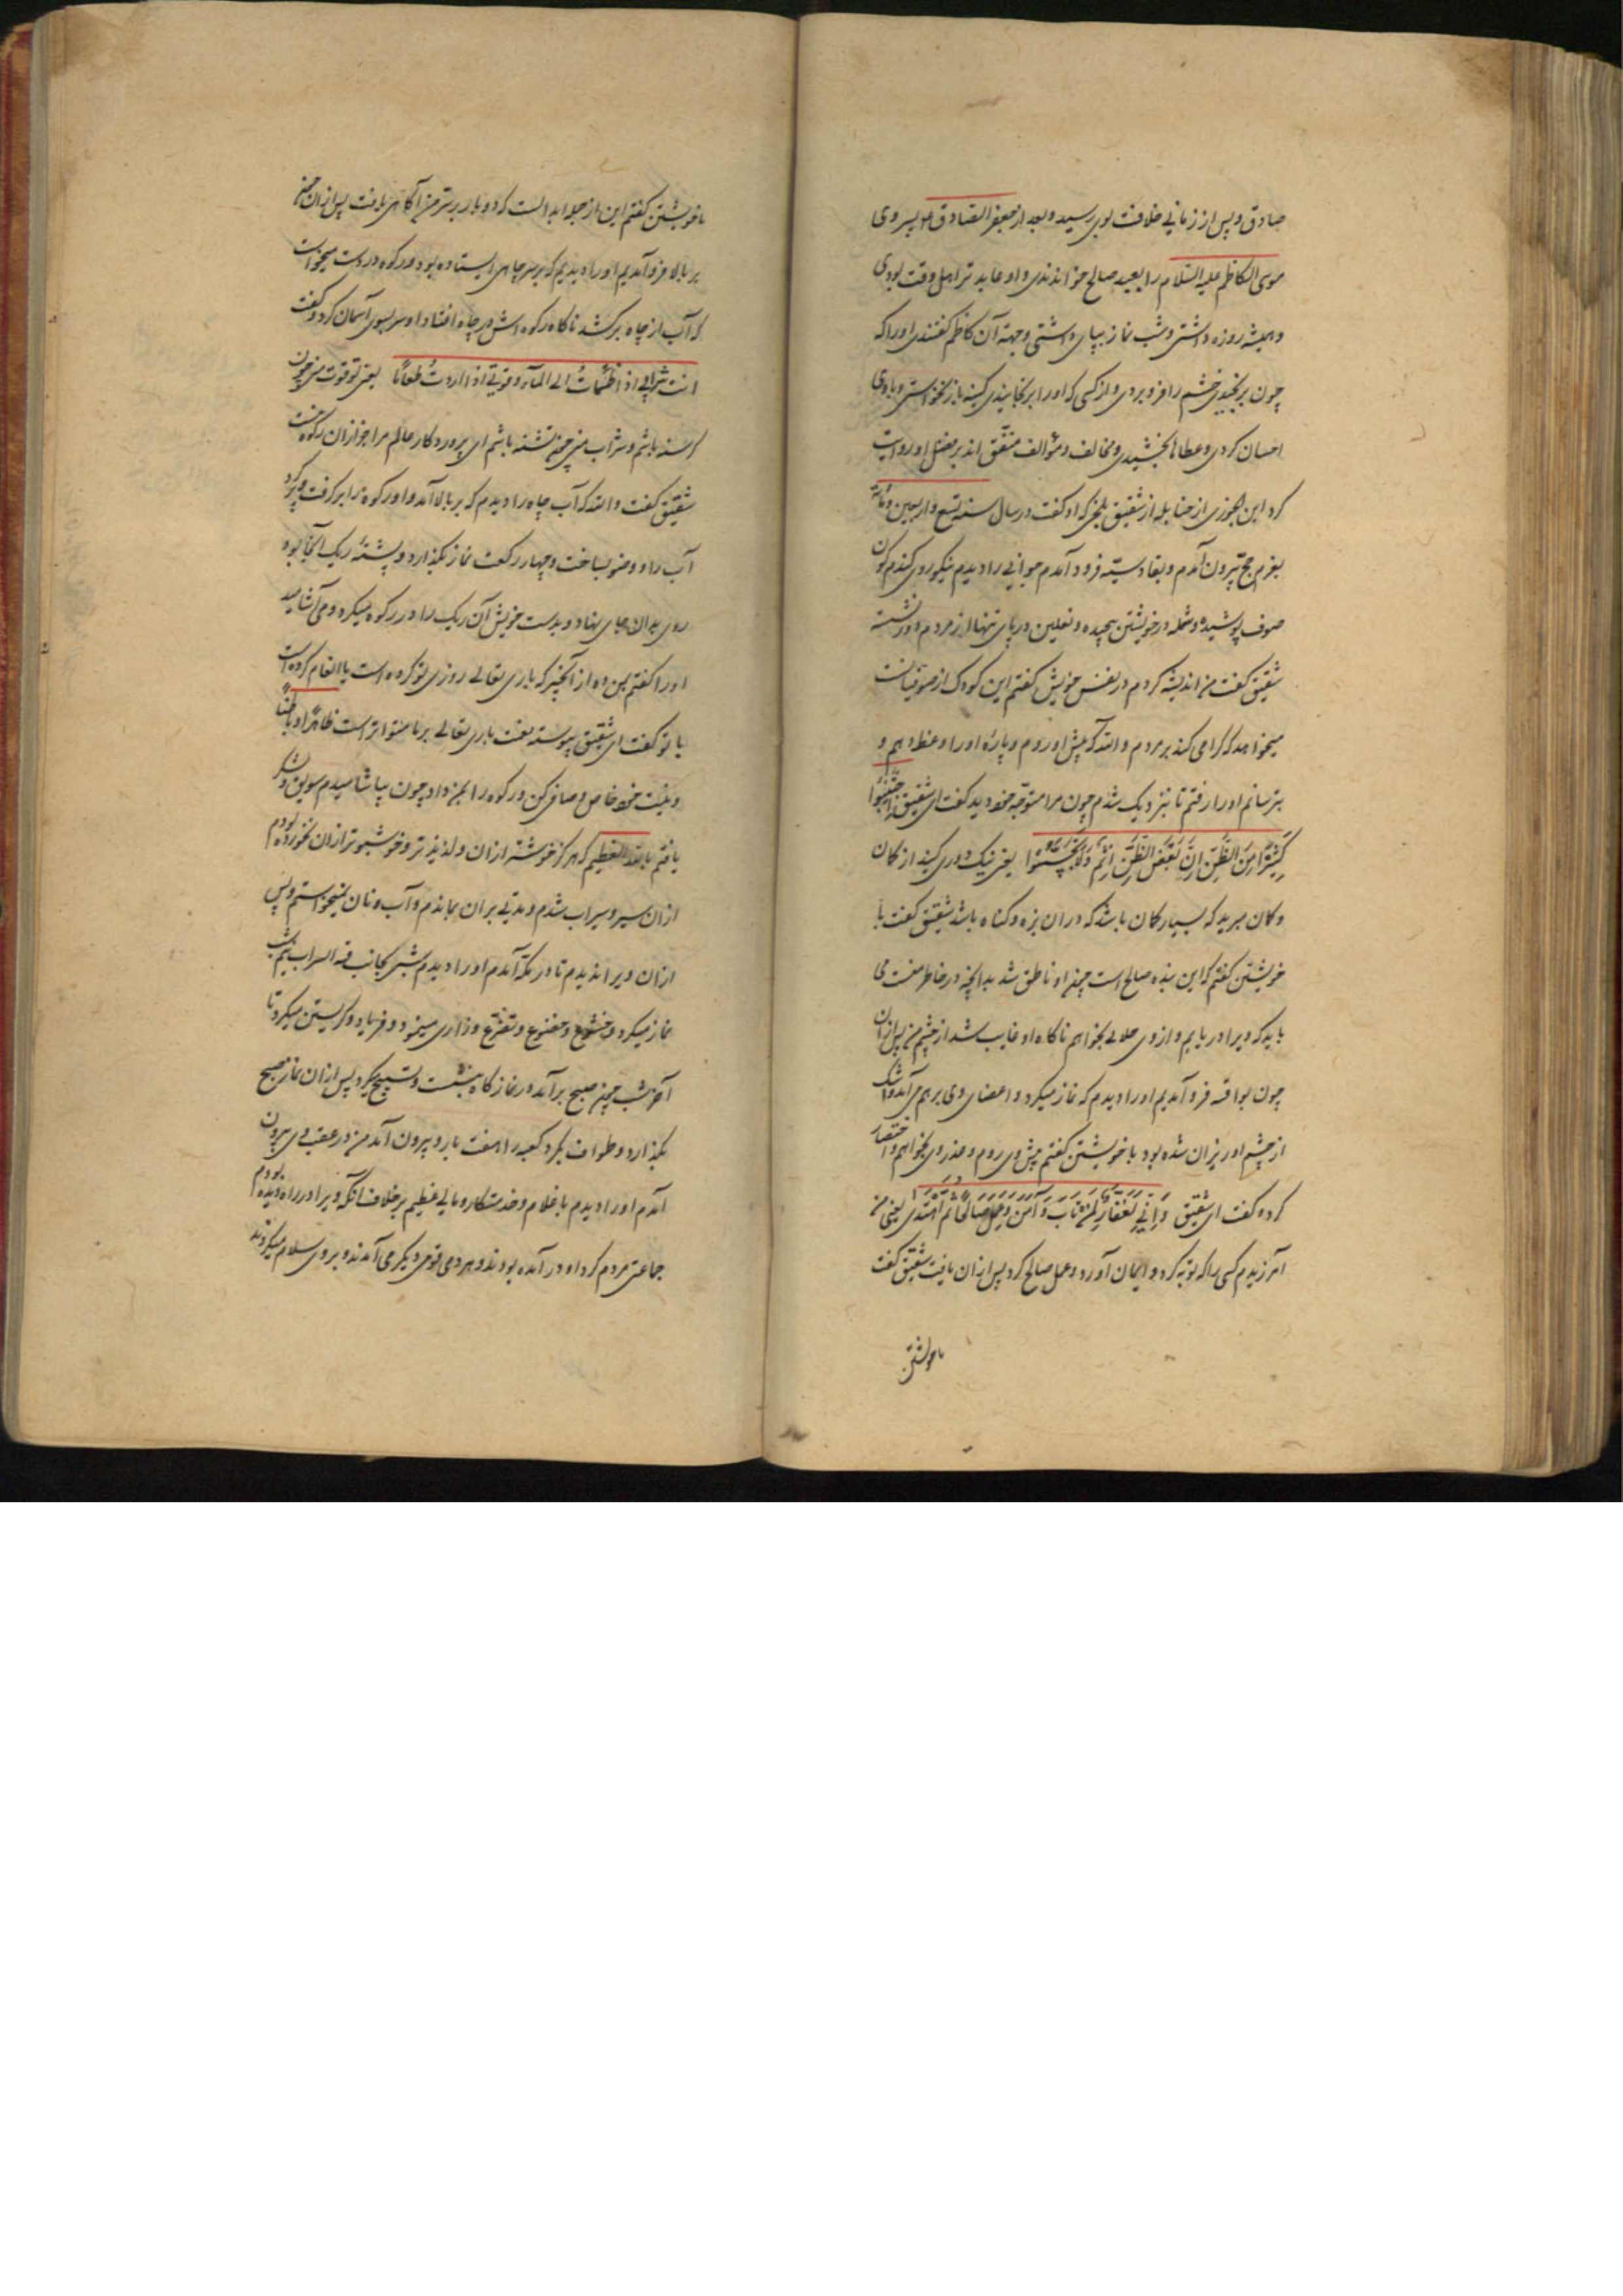 صادق و پس از زمانی خلافت بوی رسید و بعد از جعفر الصادق ع م پسر وی
موسی الکاظم علیه السلام را بعبد صالح خواندندی و او عابدتر اهل وقت بودی
و همیشه روزه داشتی و شب نماز بپای داشتی و جهة آن کاظم گفتندی او را که
چون برنجیدی خشم را فرو بردی و از کسی که او را برنجانیدی کینه باز نخواستی و با وی
احسان کردی و عطاها بخشیدی و مخالف و مؤالف متفق اند بر فضل او روایت
کرد ابن الجوزی از حنابله از شقیق بلخی که او گفت در سال سنه تسع و اربعین و مائة
بعزم حج بیرون آمدم و بقادسیّه فرود آمدم جوانی را دیدم نیکوروی گندم گون
صوف پوشیده و شمله در خویشتن پیچیده و نعلین در پای تنها از مردم دور نشسته
شقیق گفت من اندیشه کردم در نفس خویش گفتم این کودک از صوفیانست
میخواهد که گرامی کند بر مردم والله که پیش او روم و پاره او را وعظ دهم و
بترسانم او را رفتم تا بنزدیک شدم چون مرا متوجه خود دید گفت ای شقیق اِجْتَنِبُوا
کَثیرًا مِنَ الظَّنِّ اِنَّ بَعْضَ الظَّنِّ اِثْمٌ وَلَا تَجَسَّسُوا یعنی نیک دوری کنید از کمان
و کمان مبرید که بسیار کمان باشد که در آن بزه و کناه باشد شقیق گفت با
خویشتن گفتم که این بنده صالح است چون او ناطق شد بدانچه در خاطر منست می
باید که ویرا دریابم و از وی حلالی بخواهم ناکاه او غایب شد از چشم من پس از آن
چون بواقصه فرو آمدیم او را دیدم که نماز میکرد و اعضای وی بر هم می آمد و اشک
از چشم او ریزان شده بود با خویشتن گفتم پیش وی روم و عذر وی بخواهم و اختصار
کرده گفت ای شقیق وَاِنّی لَغَفّارٌ لِمَنْ تابَ وَآمَنَ وَعَمِلَ صالِحًا ثُمَّ اهْتَدی یعنی من
آمرزیدم کسی را که توبه کرد و ایمان آورد و عمل صالح کرد پس از آن یافت شقیق گفت
باخویشتن
باخویشتن گفتم این از جمله ابدالست که دو بار بر سر من آکاهی یافت پس از آن چون
بر بالا فرو آمدیم او را دیدیم که بر سر چاهی ایستاده بود و رکوه در دست میخواست
که آب از چاه برکشد ناکاه رکوه اش در چاه افتاد او سر بسوی آسمان کرد و گفت
انت شرابی اذا ظمئت الی الماء و قوتی اذا اردت طعامًا یعنی تو قوت منی چون
کرسنه باشم و شراب منی چون تشنه باشم ای پروردکار عالم مرا جز از آن رکوه نیست
شقیق گفت والله که آب چاه را دیدم که بر بالا آمد و او رکوه را برگرفت و پر کرد
آب را و وضو بساخت و چهار رکعت نماز بگذارد و پشته ریک آنجا بود
روی بدان جای نهاد و بدست خویش آن ریک را در رکوه میکرد و می آشامید
او را گفتم بمن ده از آنچیز که باری تعالی روزی تو کرده است یا انعام کرده است
با تو گفت ای شقیق پیوسته نعمت باری تعالی بر ما متواتر است ظاهرًا و باطنًا
و نیّت خود خاص و صافی کن و رکوه را بمن داد چون بیاشامیدم سویق و شکر
یافتم بالله العظیم که هرگز خوشتر از آن و لذیذتر و خوشبوتر از آن نخورده بودم
از آن سیر و سیراب شدم و مدتی بر آن بماندم و آب و نان نمیخواستم و پس
از آن ویرا ندیدم تا در مکّه آمدم او را دیدم شبی بجانب قبة السراب نیم شب
نماز میکرد و خشوع و خضوع و تضرّع و زاری مینمود و فریاد و گریستن میکرد تا
آخر شب چون صبح برآمد در نماز کاه بنشست و تسبیح میکرد پس از آن نماز صبح
بگذارد و طواف بکرد کعبه را هفت بار و بیرون آمد من در عقب وی بیرون
آمدم او را دیدم با غلام و خدمتکار و مالی عظیم بر خلاف آنکه ویرا در راه دیده بودم
جماعتی مردم کرد او در آمده بودند و هر دمی قومی دیگر می آمدند و بر وی سلام میکردند